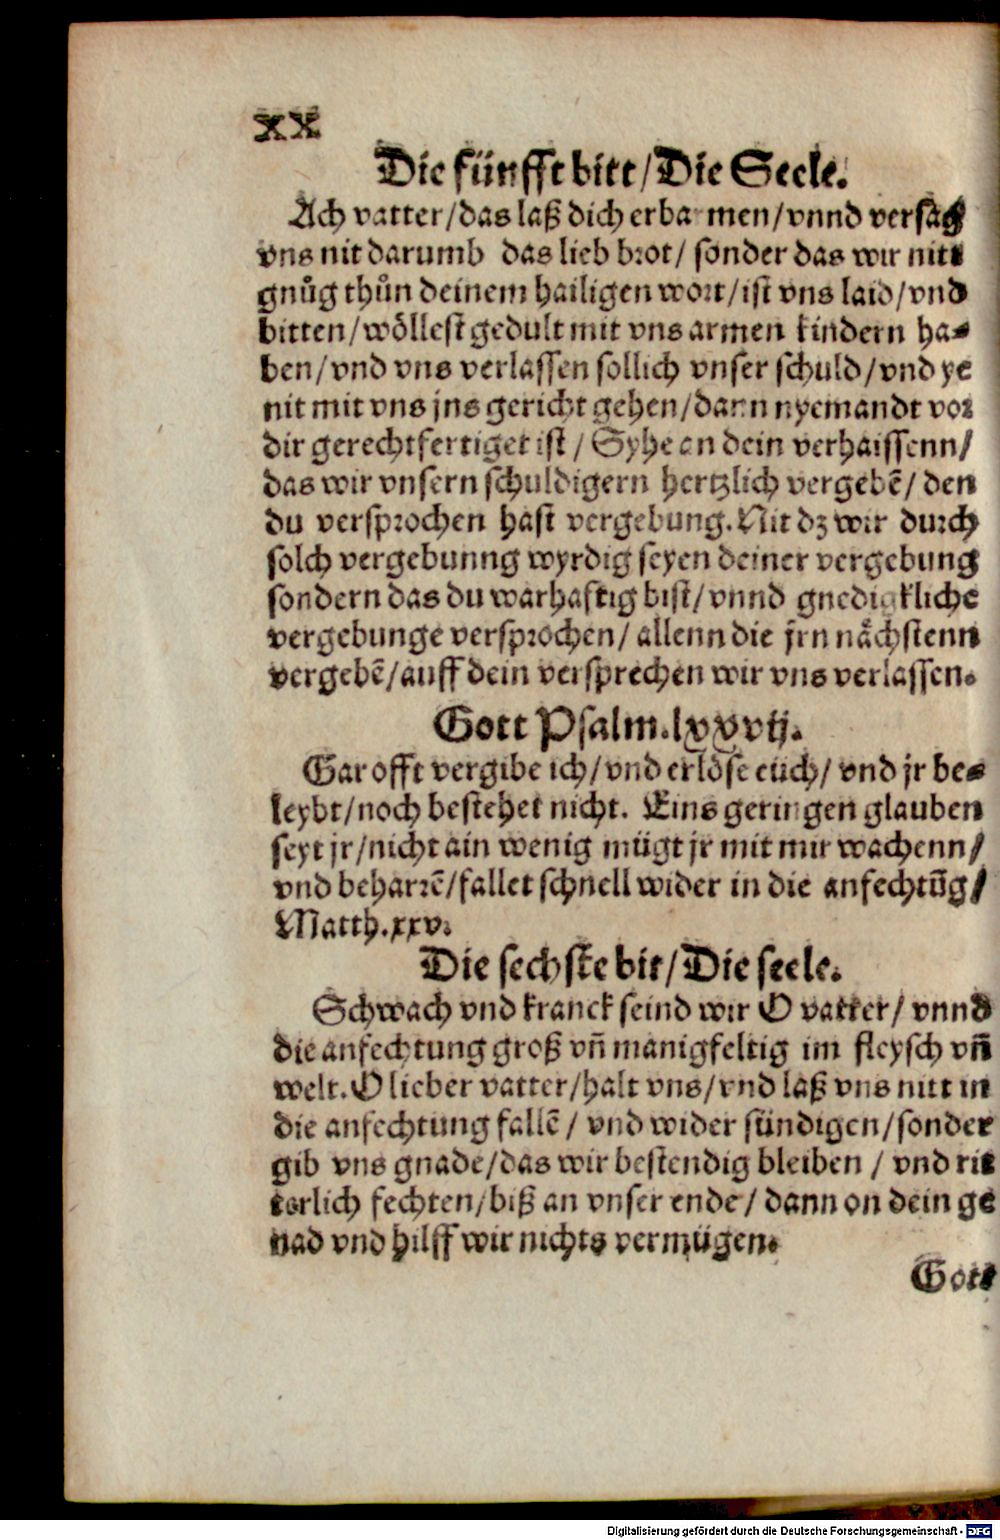 XX
Die fünfft bitt/Die Seele.
Ach vatter/das laß dich erbarmen/vnnd versag
vns nit darumb das lieb brot/ sonder das wir nitt
gnůg thůn deinem hailigen wort/ist vns laid/vnd
bitten/wöllest gedult mit vns armen kindern ha⸗
ben/vnd vns verlassen sollich vnser schuld/vnd ye
nit mit vns jns gericht gehen/dann nyemandt vor
dir gerechtfertiget ist / Syhe an dein verhaissenn/
das wir vnsern schuldigern hertzlich vergebē/ den
du versprochen hast vergebung. Nit dz wir durch
solch vergebunng wyrdig seyen deiner vergebung
sondern das du warhafftig bist/vnnd gnedigkliche
vergebunge versprochen/ allenn die jrn nächstenn
vergebē/auff dein versprechen wir vns verlassen.
Gott Psalm.lxxvij.
Gar offt vergibe ich/vnd erlöse eüch/ vnd jr be⸗
leybt/noch bestehet nicht. Eins geringen glauben
seyt jr/nicht ain wenig mügt jr mit mir wachenn/
vnd beharrē/fallet schnell wider in die anfechtūg/
Matth.xxv.
Die sechste bit/Die seele.
Schwach vnd kranck seind wir O vatter/ vnnd
die anfechtung groß vñ manigfeltig im fleysch vñ
welt. O lieber vatter/halt vns/vnd laß vns nitt in
die anfechtung fallē / vnd wider sündigen/sonder
gib vns gnade/das wir bestendig bleiben / vnd rit
terlich fechten/biß an vnser ende/ dann on dein ge
nad vnd hilff wir nichts vermügen.
Gott
Digitalisierung gefördert durch die Deutsche Forschungsgemeinschaft - DFG